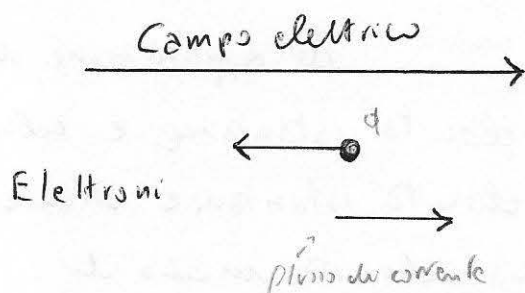 Campo elettrico
q
Elettroni
flusso di corrente